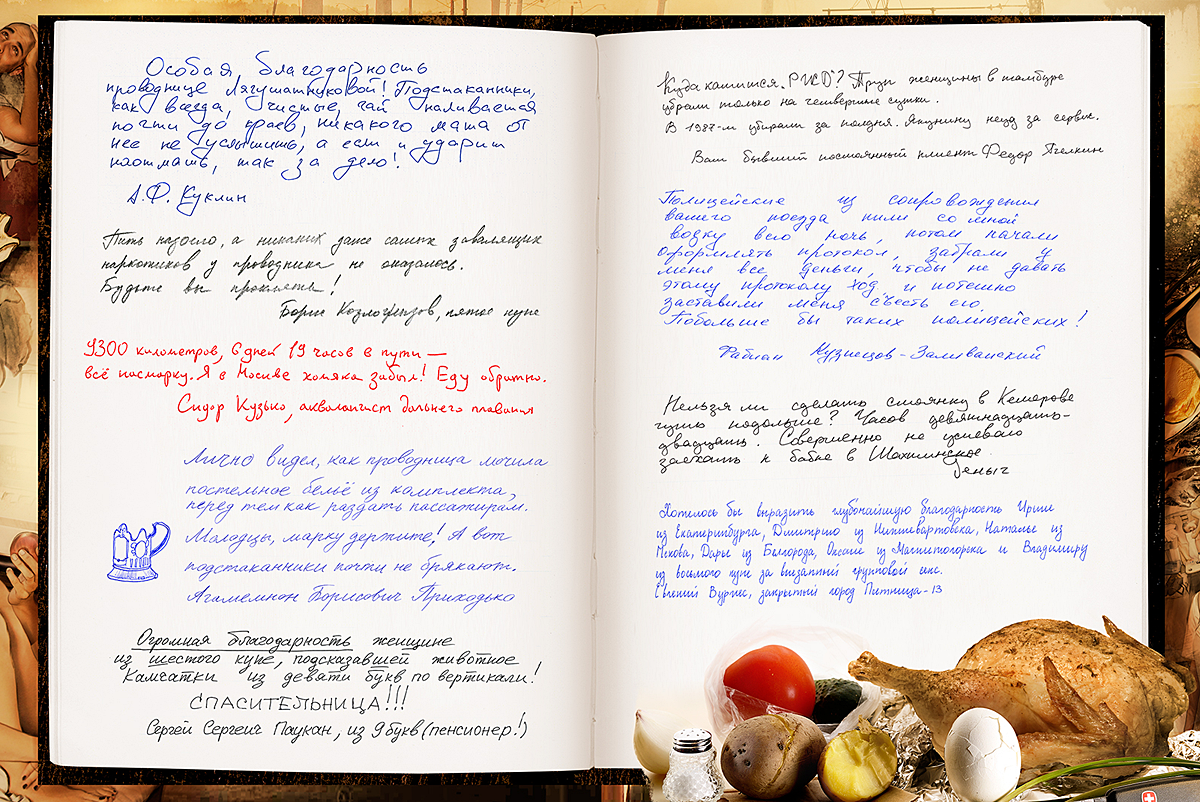 Особая благодарность
проводнице Лягушатниковой! Подстаканники,
как всегда, чистые, чай наливается
почти до краёв, никакого мата от
нее не услышишь, а если и ударит
наотмашь, так за дело!
А.Ф. Куклин
Пить надоело, а никаких даже самых завалящих
наркотиков у проводника не оказалось.
Будьте вы прокляты!
Борис Козлогрызов, пятое купе
9300 километров, 6 дней 19 часов в пути —
всё насмарку. Я в Москве хомяка забыл! Еду обратно.
Сидор Кузько, аквалангист дальнего плавания
Лично видел, как проводница мочила
постельное бельё из комплекта,
перед тем как раздать пассажирам.
Молодцы, марку держите! А вот
подстаканники почти не брякают.
Агамемнон Борисович Приходько
Огромная благодарность женщине
из шестого купе, подсказавшей животное
Камчатки из девяти букв по вертикали!
СПАСИТЕЛЬНИЦА!!!
Сергей Сергеич Паукан, из 9 букв (пенсионер!)
Куда катишся, РЖД? Труп женщины в тамбуре
убрали только на четвертые сутки.
В 1987-м убирали за полдня. Якунину неуд за сервис.
Ваш бывший постоянный клиент Федор Ягелкин
Полицейские из сопровождения
вашего поезда пили со мной
водку всю ночь, потом начали
оформлять протокол, забрали у
меня все деньги, чтобы не давать
этому протоколу ход, и потешно
заставили меня съесть его.
Побольше бы таких полицейских!
Фабиан Кузнецов-Заливанский
Нельзя ли сделать стоянку в Кемерове
чуть подольше? Часов девятнадцать-
двадцать. Совершенно не успеваю
заехать к бабке в Шахтинское.
Геныч
Хотелось бы выразить глубочайшую благодарность Ирине
из Екатеринбурга, Дмитрию из Нижневартовска, Наталье из
Пскова, Дарье из Белгорода, Оксане из Магнитогорска и Владимиру
из восьмого купе за внезапный групповой секс.
Евгений Вургис, закрытый город Пятница-13